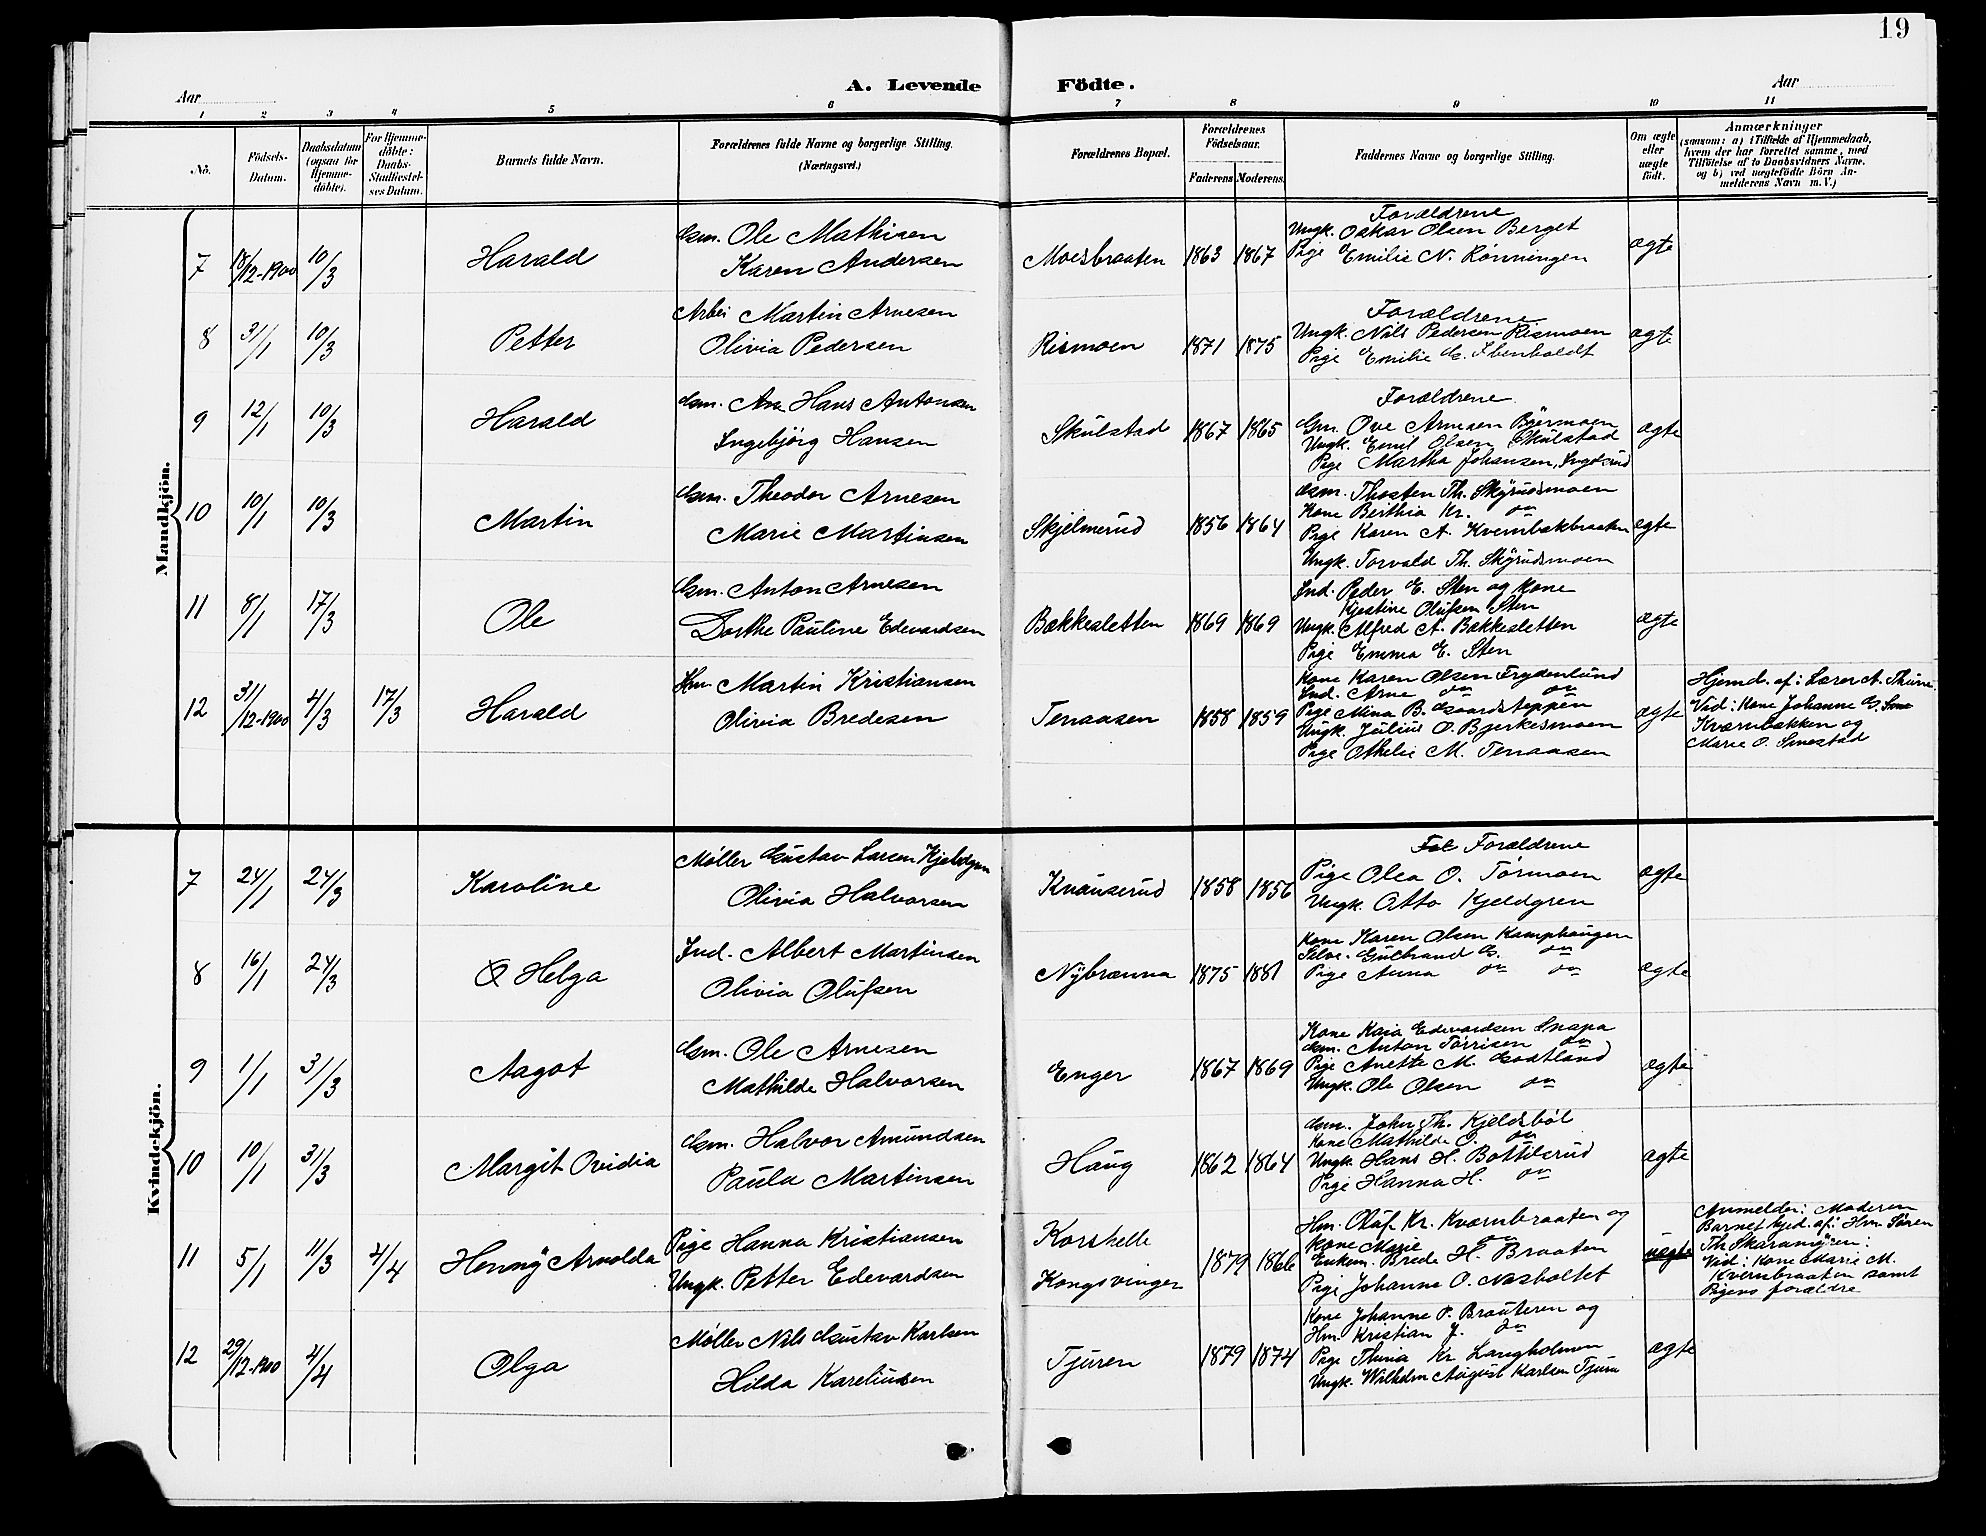 19
A. Levende Födte.
Aar
Aar
1 2 3 4 5 6 7 8 9 10 11
No.
Födsels-Datum.
Daabsdatum (ogsaa for Hjemme-döbte).
For Hjemme-döbte: Daabs-Stadfæstel-ses Datum.
Barnets fulde Navn.
Forældrenes fulde Navne og borgerlige Stilling. (Næringsvei.)
Forældrenes Bopæl.
Forældrenes Födselsaar.
Faderens Moderens.
Faddernes Navne og borgerlige Stilling.
Om ægte eller uægte födt.
Anmærkninger
(saasom: a) i Tilfælde af Hjemmedaab, hvem der har forrettet samme, med Tilföielse af to Daabsvidners Navne. og b) ved uægtefödte Börn An-melderens Navn m. V.)
Mandkjön.
7 /12-1900 10/3 Harald
Gsm. Ole Mathisen
Karen Andersen
Moesbraaten 1863 1867
Forældrene
Ungk. Oskar Olsen Berget
Pige Emilie N. Rønningen
ægte
8 3/1 10/3 Petter
Arbei Martin Arnesen
Olivia Pedersen
Rismoen 1871 1875
Forældrene
Ungk. Nils Pedersen Rismoen
Pige Emilie G. Ibenholdt
ægte
9 12/1 10/3 Harald
Gsm. Hans Antonsen
Ingebjörg Hansen
Skulstad 1867 1865
Forældrene
Gm. Ove Arnesen Börmoen
Ungk. Emil Olsen Skulstad
Pige Martha Johansen,
ægte
10 10/1 10/3 Martin
Gsm. Theodor Arnesen
Marie Martinsen
Skjelmerud 1856 1864
Gsm. Thosten Th. Skyrudsmoen
Kone Berthia Kr. do
Pige Karen A. Kvernbækbraaten
Ungk. Torvald Th. Skyrudsmoen
ægte
11 8/1 17/3 Ole
Gsm. Anton Arnesen
Dorthe Pauline Edevardsen
Bækkesletten 1869 1869
Ind. Peder E. Sten og Kone
Kjestine Olufsen Sten
Ungk. Alfred A. Bækkesletten
Pige Emma E. Sten
ægte
12 31/12-1900 4/3 17/3 Harald
Hm. Martin Kristiansen
Olivia Bredesen
Tenaasen 1858 1859
Kone Karen Olsen Frydenlund
Ind. Arne do do
Pige Mina B. Gaardsteppen
Ungk. Julius O. Bjerkesmoen
Pige Othelie M. Tenaasen
ægte
Hjemd. af: Lærer A. Thune.
Vid: Kone Johanne G.
Kværnbækken og
Marie O. Smestad
Kvindekjön.
7 24/1 24/3 Karoline
Møller Gustav Larsen Kjeldgren
Olivia Halvorsen
Knauserud 1858 1856
Forældrene
Pige Olea O. Tørmoen
Ungk. Otto Kjeldgren
ægte
8 16/1 24/3 Helga
Ind. Albert Martinsen
Olivia Olufsen
Nybrænna 1875 1881
Kone Karen Olsen Kamphaugen
Selve. Gulbrand G. do
Pige Anna do do
ægte
9 1/1 31/3 Aagot
Gsm. Ole Arnesen
Mathilde Halvorsen
Enger 1867 1869
Kone Kaia Edevardsen Snapa
Gsm. Anton Tørrisen do
Pige Anette M. Gaatland
Ungk. Ole Olsen do
ægte
10 10/1 31/3 Margit Ovidia
Gsm. Halvor Amundsen
Paula Martinsen
Haug 1862 1864
Gsm. John Th. Kjeldsbøl
Kone Mathilde O. do
Ungk. Hans H. Bottilsrud
Pige Hanna H. do
ægte
11 5/1 11/3 4/4 Henny Arnolda
Pige Hanna Kristiansen
Ungk. Petter Edevardsen
Korshelle
Kongsvinger
1879 1866
Hm. Oluf Kr. Kværnbraaten og
Kone Marie do
Enkem. Brede H. Braaten
Pige Johanne O. Næsholtet
uægte
Anmelder: Moderen
Barnet hjd. af: Hm Søren
Th. Skaramyren:
Vid: Kone Marie M.
Kvernbraaten samt
Pigens forældre
12 29/12-1900 4/4 Olga
Møller Nils Gustav Karlsen
Hilda Kareliusen
Tjuren 1879 1874
Kone Johanne P. Brauteren og
Hm. Kristian J. do
Pige Thina Kr. Langholmen
Ungk. Wilhelm August Karlsen Tjuren
ægte